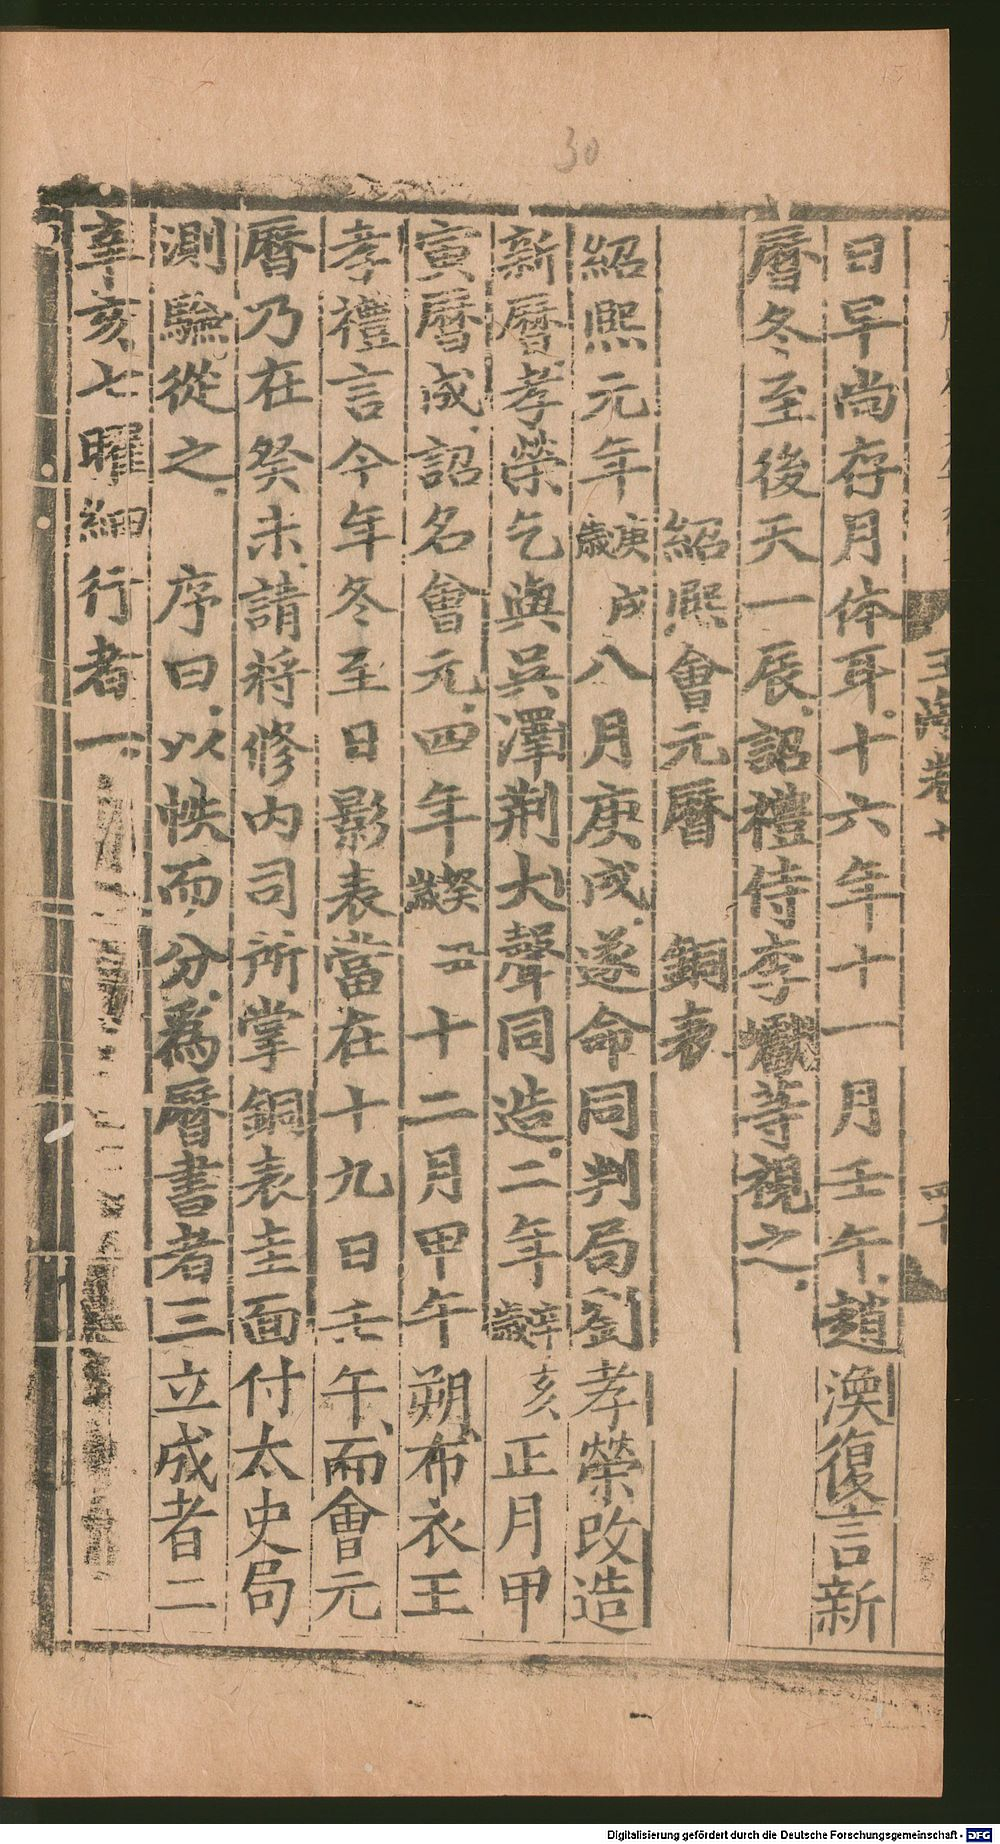 30
日早尚存月体耳十六年十一月壬午趙渙復言新
曆冬至後天一辰詔禮侍李巘等視之
紹熙會元曆 銅表
紹熙元年歲庚戌八月庚戌遂命同判局劉孝榮改造
新曆孝榮乞與吳澤荆大聲同造二年歲辛亥正月甲
寅曆成詔名會元四年歲癸丑十二月甲午朔布衣王
孝禮言今年冬至日影表當在十九日壬午而會元
曆乃在癸未請將修内司所掌銅表圭面付太史局
測驗從之 序曰以帙而分爲曆書者三立成者二
辛亥七曜細行者一
Digitalisierung gefördert durch die Deutsche Forschungsgemeinschaft - DFG